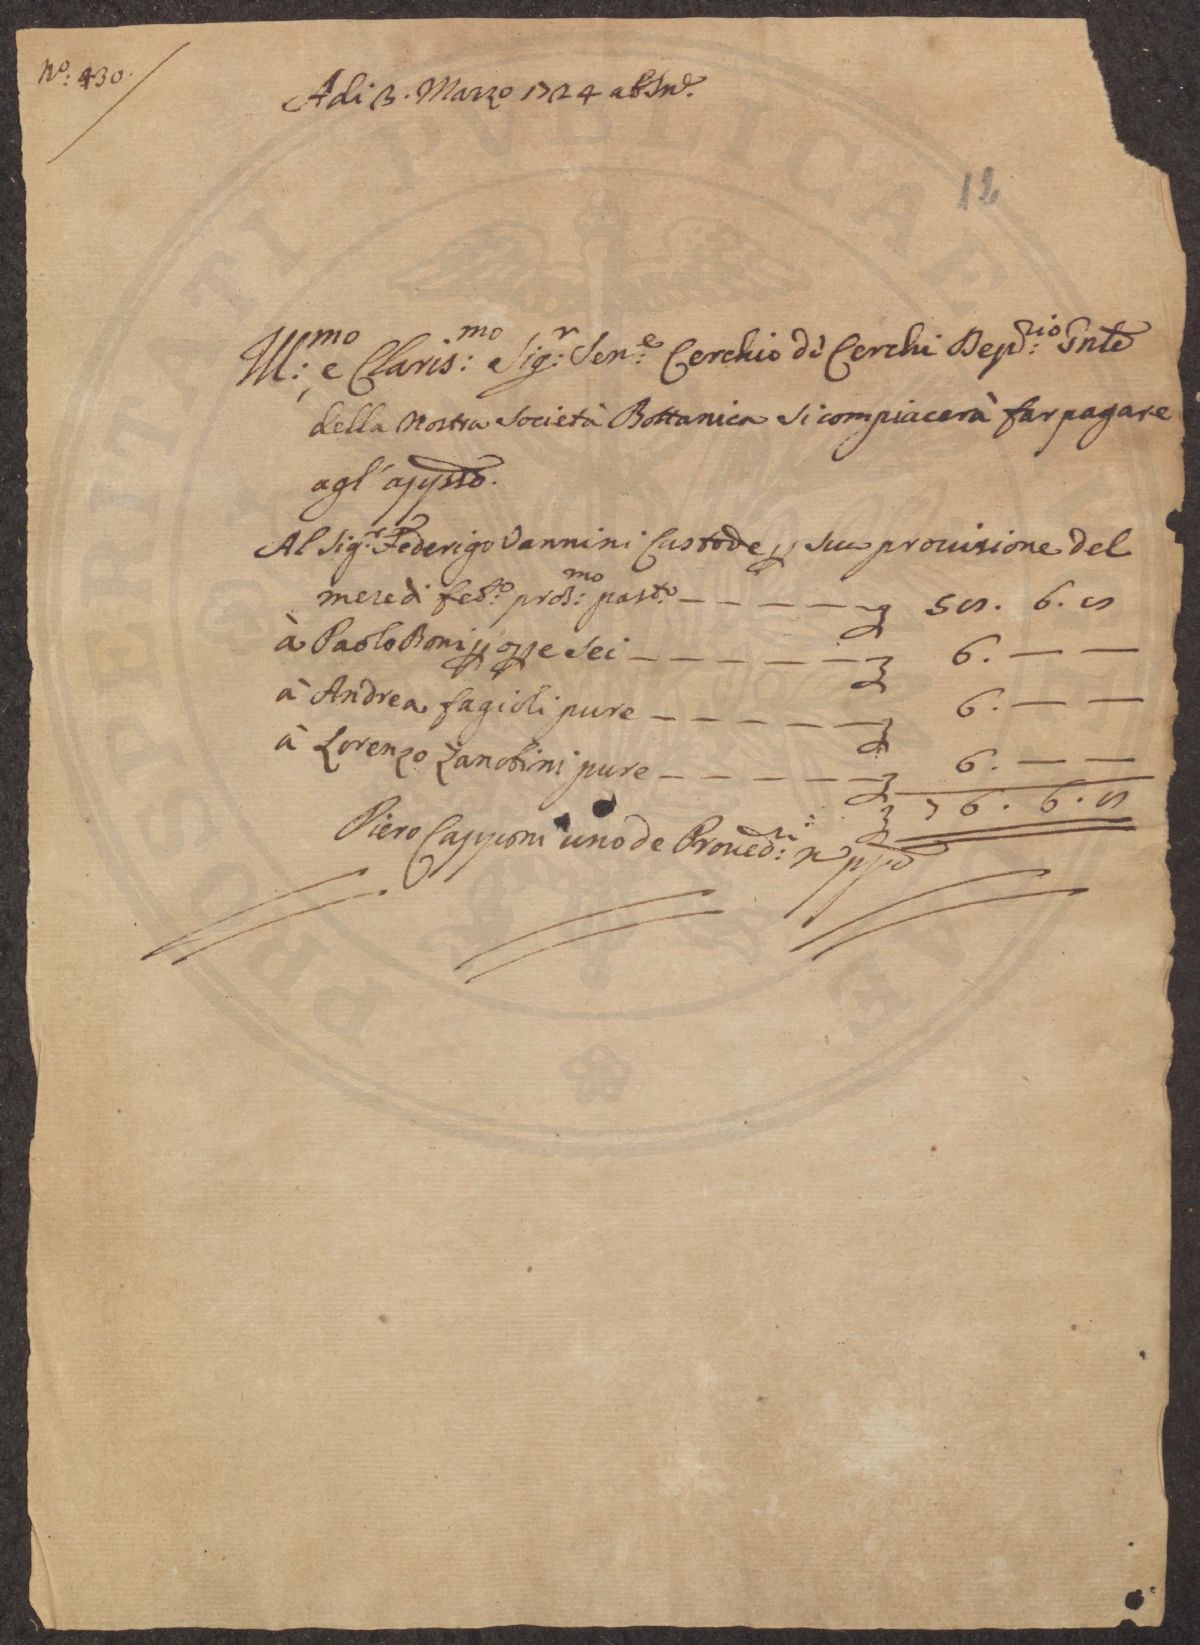 N.º: 430.
Adi 3. Marzo 1724 ab Inc.
12
Ill:mo e Claris:mo Sig:r Sen:e Cerchio di Cerchi Dep:rio Gnle
della nostra Società Bottanica si compiacerà far pagare
agl' app.ti
Al Sig:r Federigo Vannini Custode p sua provisione del
mese di feb:o pros:mo past:o — — — — — — 58. 6. 8
à Paolo Boni p opre sei — — — — — — 6. — —
à Andrea fagioli pure — — — — — — 6. — —
à Lorenzo Zanobini pure — — — — — — 6. — —
76. 6. 8
Piero Capponi uno de Proved:ri
PROSPERITATI PVBLICAE